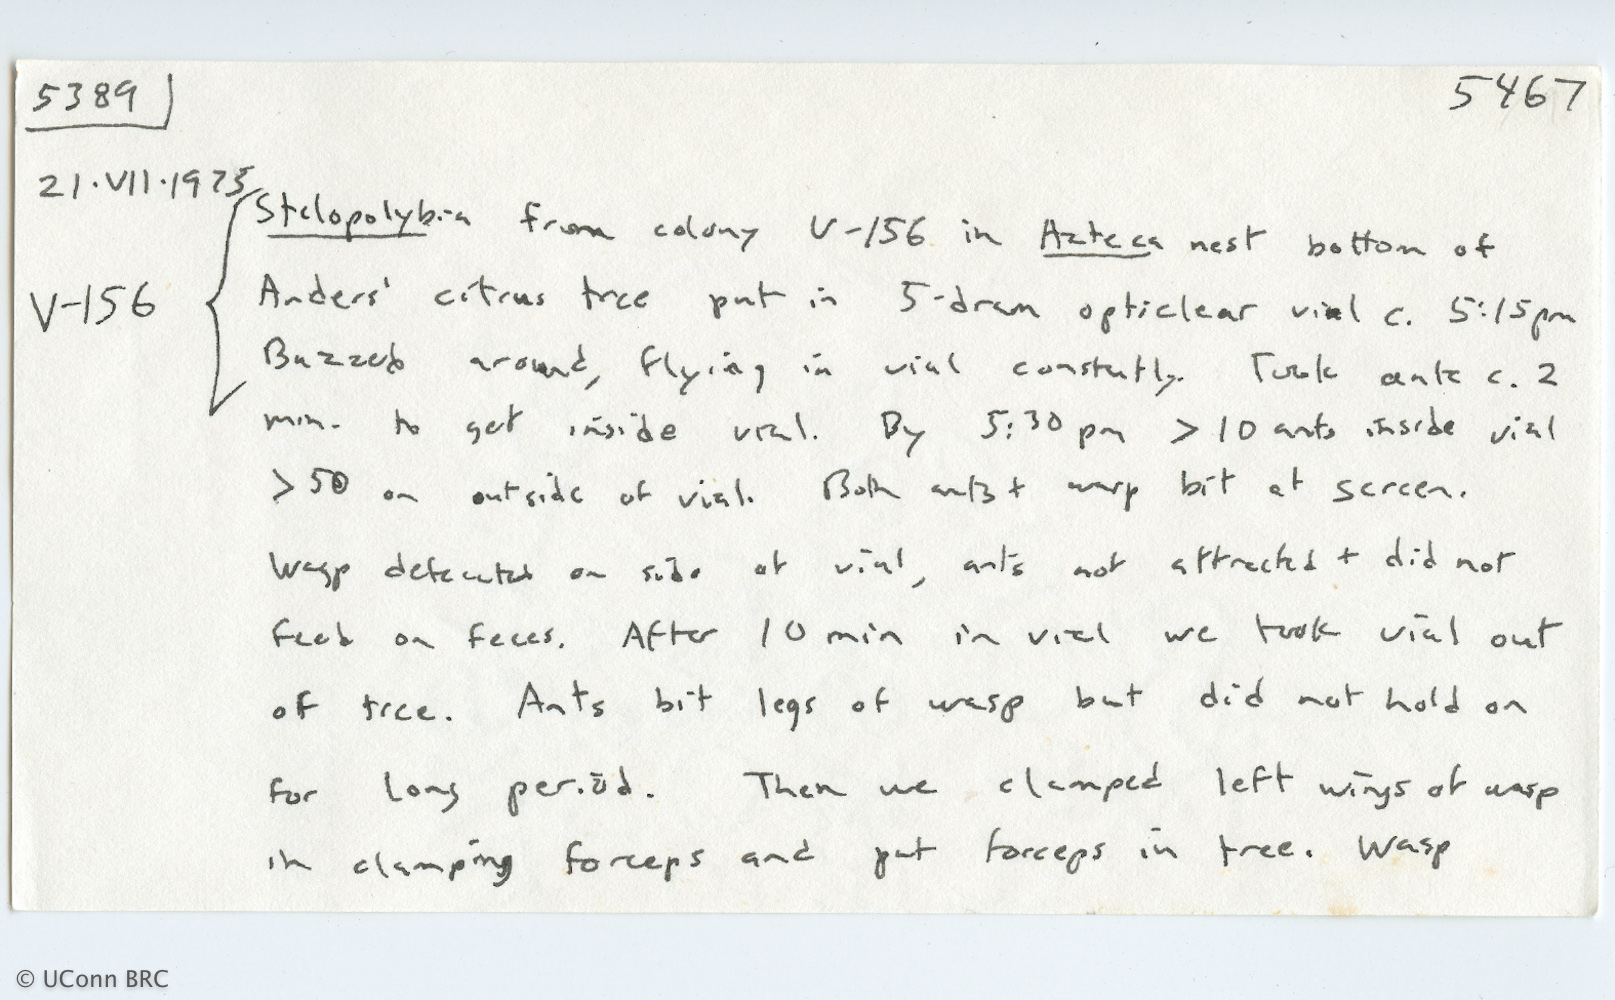 5389
5467
21·VII·1975
V-156
Stelopolybia from colony V-156 in Azteca nest bottom of
Anders' citrus tree put in 5-dram opticlear vial c. 5:15pm
Buzzed around, flying in vial constantly. Took ants c. 2
min. to get inside vial. By 5:30 pm >10 ants inside vial
>50 on outside of vial. Both ants + wasp bit at screen.
Wasp defecated on side of vial, ants not attracted + did not
feed on feces. After 10 min in vial we took vial out
of tree. Ants bit legs of wasp but did not hold on
for long period. Then we clamped left wings of wasp
in clamping forceps and put forceps in tree. Wasp
© UConn BRC